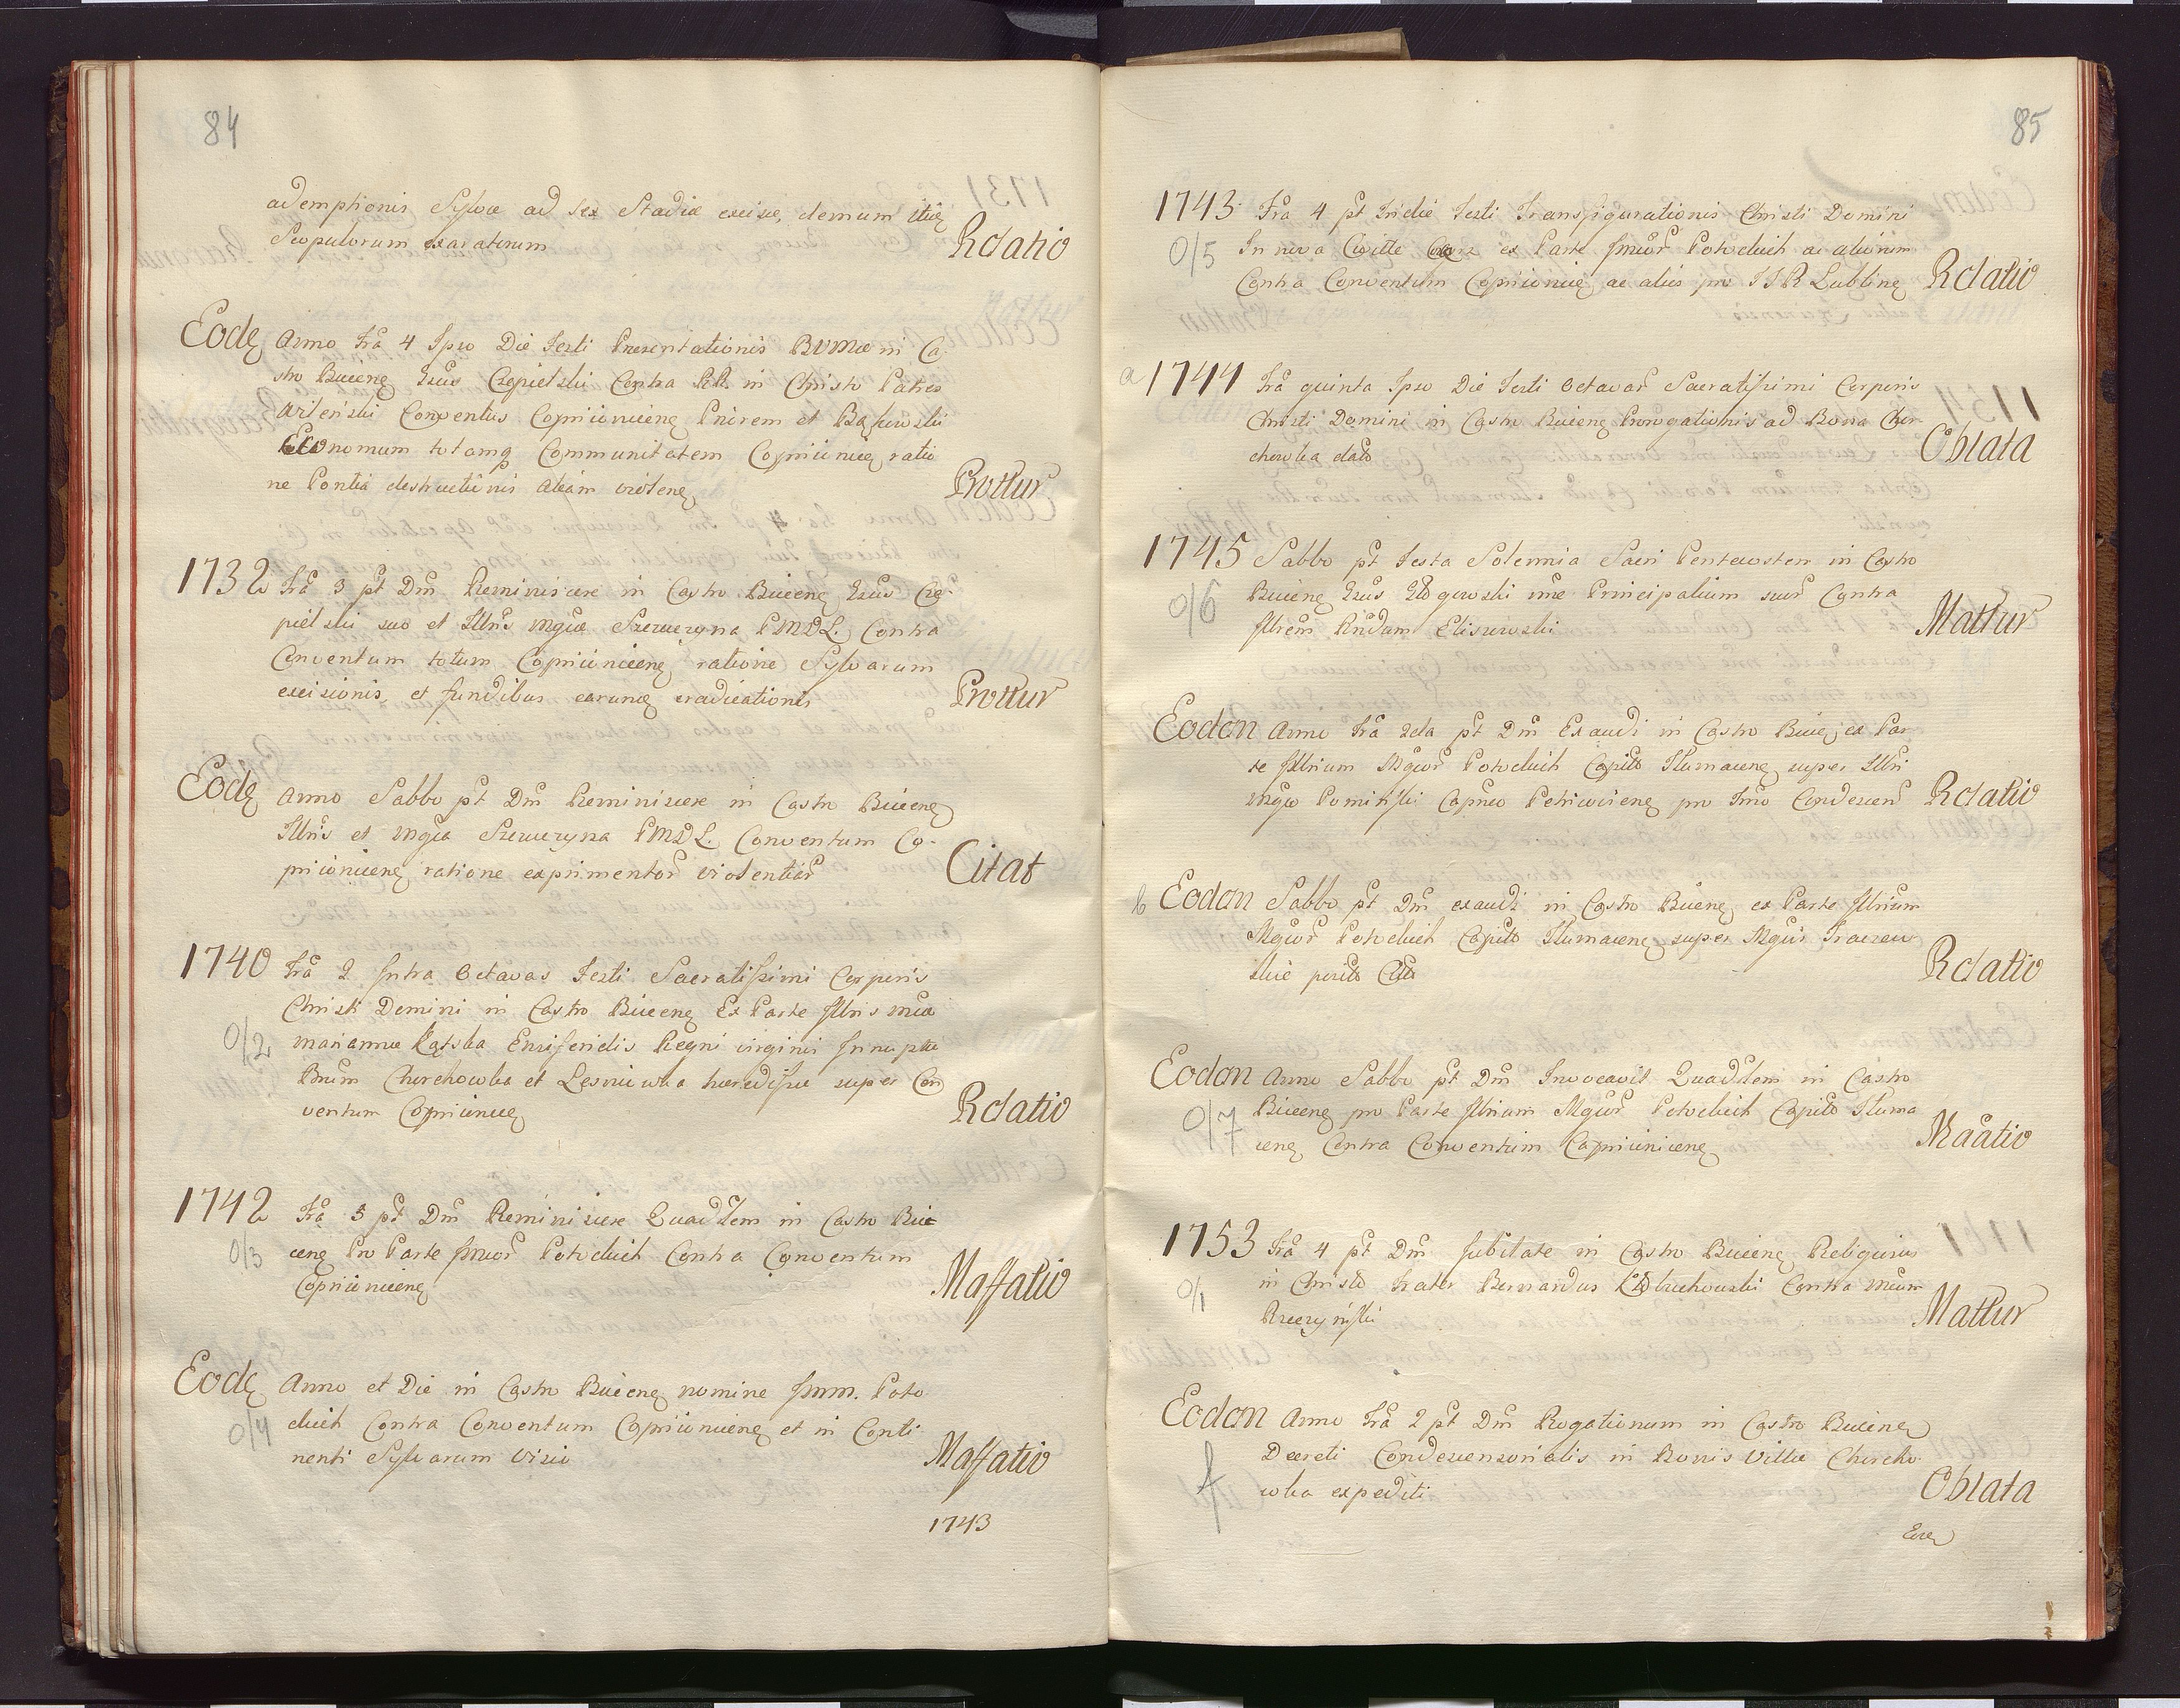 84
ademptionis Sylvæ ad sex Stadia excisæ, demum itię
Scopulorum exaratorum Rdatio
Eodę Anno Frã 4 Ipso Die Festi Præsentationis BVMæ in Ca-
stro Biecenę Gsus Czepielski Contra RR. in Christo Patres
Conventus Coprivnicenę Priorem et
Economum totamq Communitatem Coprivnicę ratio
ne destructionis aliam violenę Prottur
1732 Frã 3 pt Dm Reminiscere in Castro Biecenę Gsus Cze-
pielski suo et Illris Mgcæ Szewczyna PMDL. Contra
Conventum totum Coprivnicenę ratione Sylvarum
excisionis, et fundibus earunq eradicationis Prottur
Eodę Anno Sabbo pt Dm Reminiscere in Castro Biecenę
Illris et Mgca Szewczyna PMDL. Conventum Co-
privnicenę ratione exprimentor violentiar Citat
1740 Frã 2 Intra Octavas Festi Sacratissimi Corporis
Christi Domini in Castro Biecenę Ex Parte Illris Mcæ
0/2 Mariannæ Kątska Ensiferidis Regni virginis Innuptæ
Bnrm Chorchowka et Lesniowka hæredissæ super Con
ventum Coprivnicę Rdatio
1742 Frã 3 pt Dm Reminiscere Quadlem in Castro Bie
0/3 cenę Pro Parte Potockich Contra Conventum
Coprivnicenę Maffatio
Eodę Anno et Die in Castro Biecenę nomine Poto
0/4 ckich Contra Conventum Coprivnicenę et in Conti
nenti Sylvarum Visio Maffatio
1743
85
1743 Frã 4 pt Fridie Festi Transfigurationis Christi Domini
0/5 In nova Civitte ex Parte Potockich ac aliorum
Contra Conventum Coprivnicę ac alios pro IIR Lublinę Rdatio
a 1744 Frã quinta Ipso Die Festi Octavar Sacratissimi Corporis
Christi Domini in Castro Biecenę Prorogationis ad Bona Chor-
chowka dato Oblata
1745 Sabbo pt Festa Solennia Sacri Pentecosten in Castro
0/6 Biecenę Gsus Głogowski nne Principalium suor Contra
Illrem Rndum Elisiewski Mattur
Eodem Anno Frã 2da pt Dm Exaudi in Castro Biecę ex Par
te Illrium Mgcor Potockich Capito Tłumacenę super Illri
Mgco Pominski Capneo pro Condescen Rdatio
b Eodem Sabbo pt Dm exaudi in Castro Biecenę ex Parte Illrium
Mgcor Potockich Capito Tłumacenę super Mgcis
Rdatio
Eodem Anno Sabbo pt Dm Invocavit Quadlem in Castro
0/7 Biecenę pro Parte Illrium Mgcor Potockich Capito Tłuma
cenę Contra Conventum Coprivnicenę Maãtio
1753 Frã 4 pt Dm Jubilate in Castro Biecenę Religiosus
0/1 in Christo Frater Bernardus Contra Mcum
Rzeczynski Mattur
Eodem Anno Frã 2 pt Dm Rogationum in Castro Biecenę
Decreti Condescensorialis in Bonis Villæ Chorcho
wka expediti Oblata